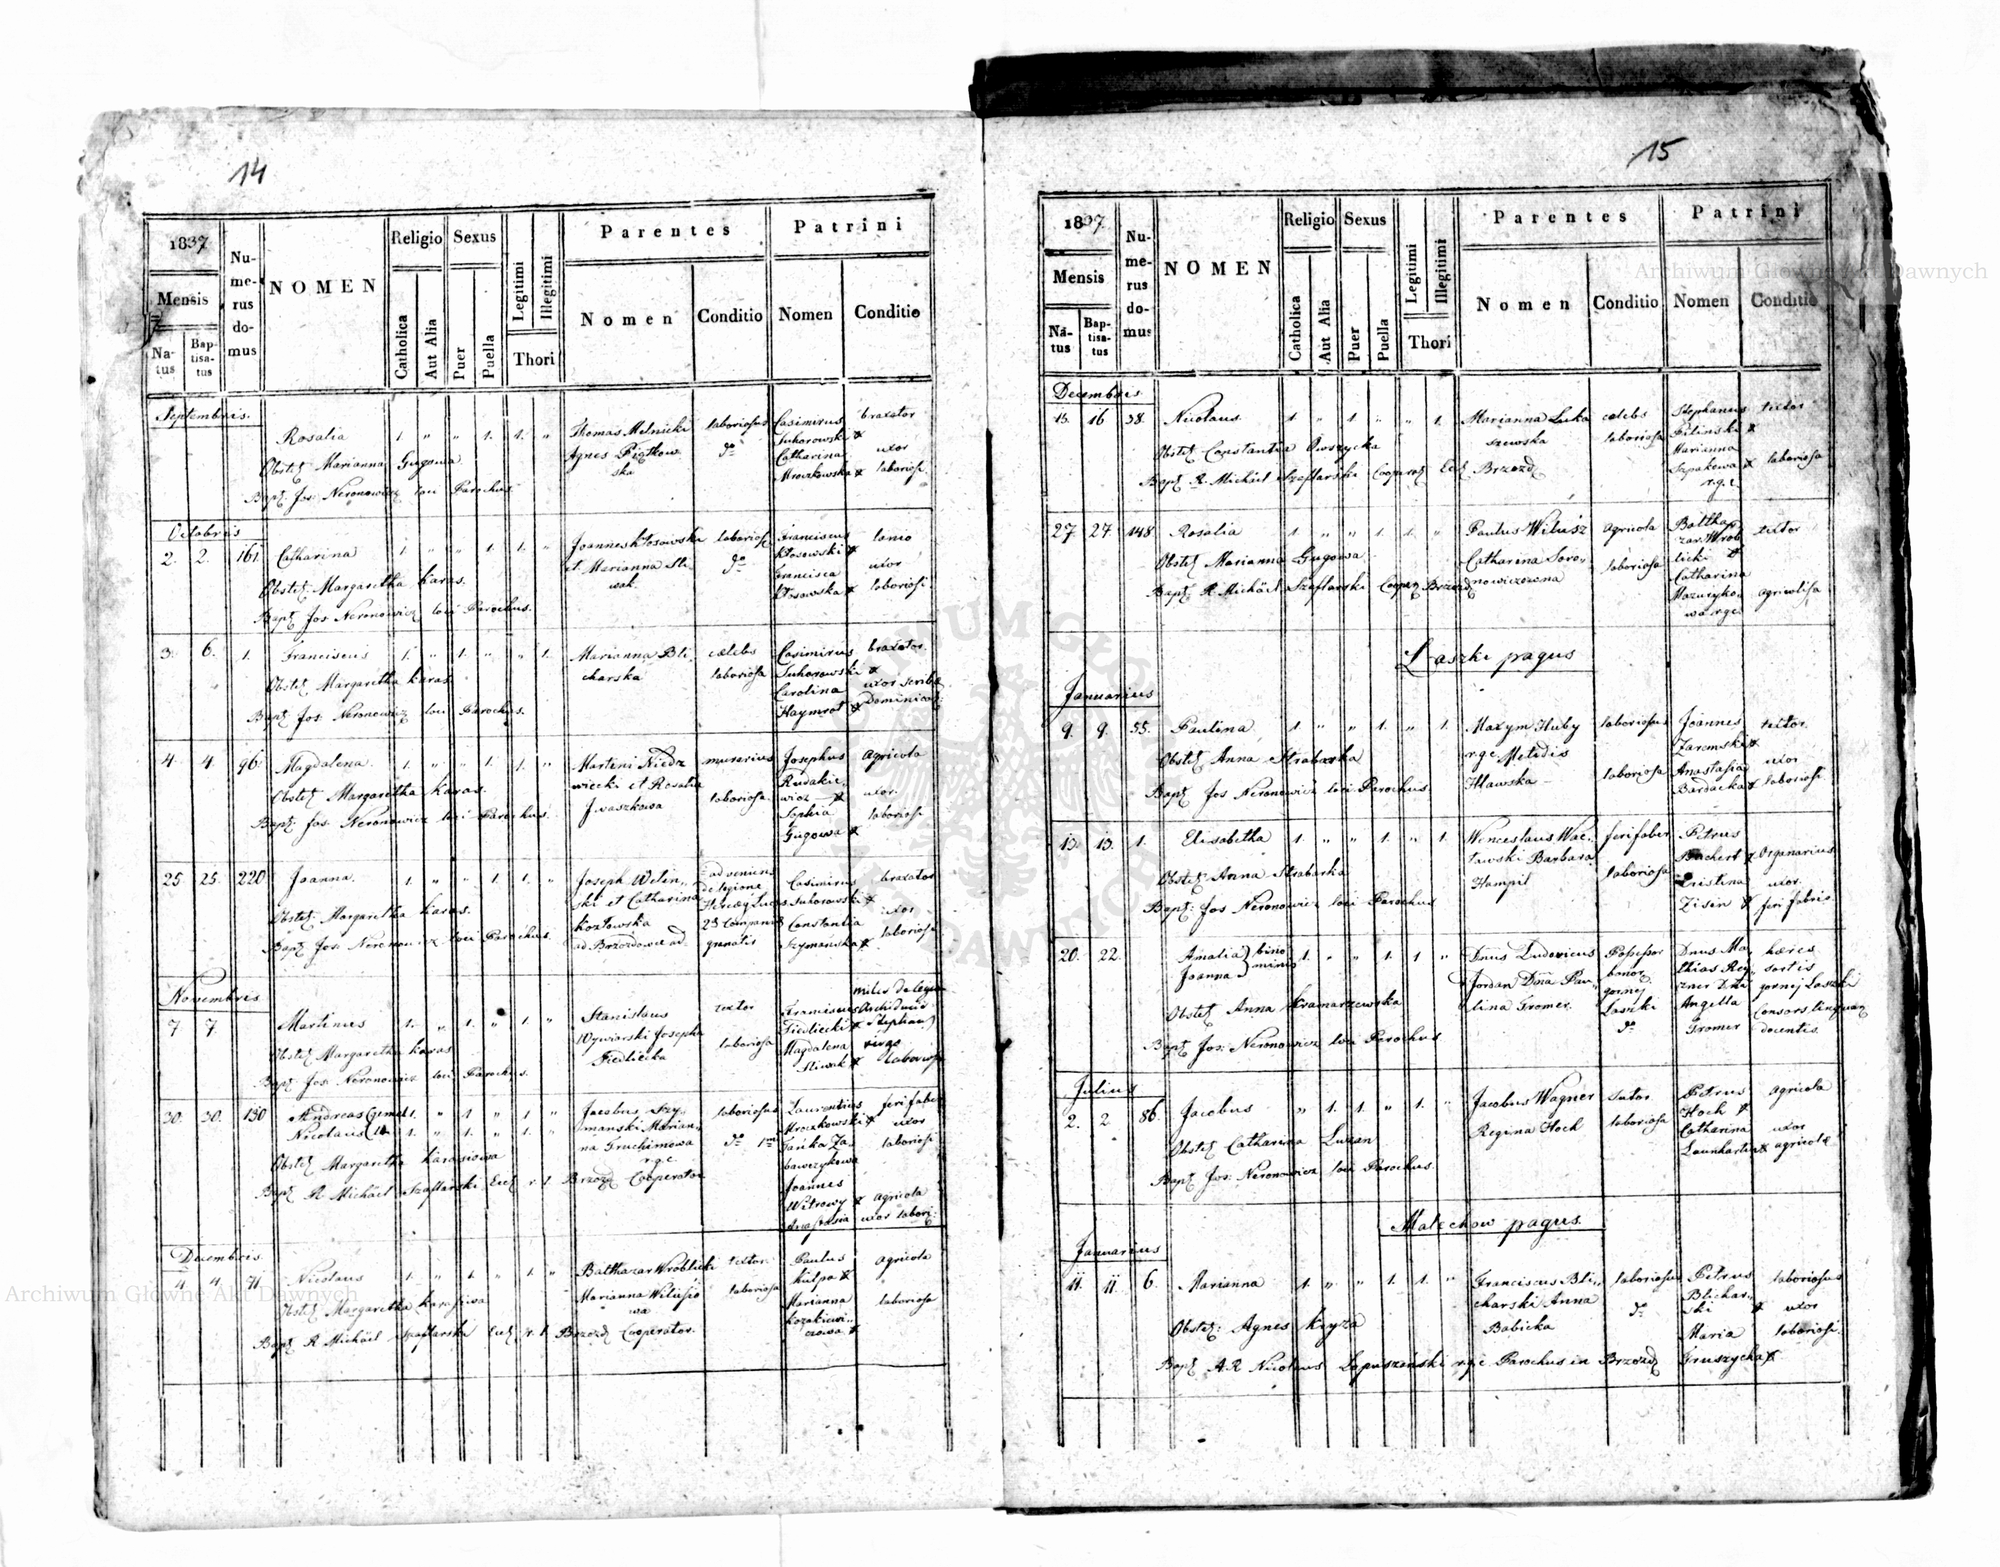 14
1837
Mensis
Natus
Baptisatus
Numerus domus
NOMEN
Religio
Catholica
Aut Alia
Sexus
Puer
Puella
Legitimi
Illegitimi
Thori
Parentes
Nomen
Conditio
Patrini
Nomen
Conditio
Septembris.
Rosalia 1. " " 1. 1. " Thomas Melnicki laboriosus Casimirus braxator
Agnes Piątkow- do Suhorowski
ska Catharina uxor
Obstet. Marianna Gugowa Mroczkowska laboriosi
Bapt. Jos. Neronowicz loci Parochus.
Octobris
2. 2. 161. Catharina 1. " " 1. 1. " Joannes Kłosowski laborios. Franciscus lanio
et Marianna Sli- do Kłosowski
wak. Francisca uxor
Obstet. Margaretha Karas. Kłosowska laboriosi
Bapt. Jos. Neronowicz loci Parochus.
3. 6. 1. Franciscus 1. " 1. " " 1. Marianna Bli- cœlebs Casimirus braxator.
charska laboriosa Suhorowski
Obstet. Margaretha Karas Carolina uxor scribæ
Bapt. Jos. Neronowicz loci Parochus. Haymrot Dominical.
4. 4. 96. Magdalena 1. " " 1. 1. " Marteni Niedz murarius Josephus agricola
wiecki et Rosalia Rudakie-
Obstet. Margaretha Karas. Iwaszkowa laboriosa wicz uxor.
Bapt. Jos. Neronowicz loci Parochus. Sophia laboriosi
Gugowa
25. 25. 220 Joanna 1. " " 1. 1. " Joseph Welin- adveniens braxator
ski et Catharina de legione Casimirus
Kozłowska Suhorowski
Obstet. Margaretha Karas. Constantia uxor
Bapt. Jos. Neronowicz loci Parochus. ad Brzozdowce Szymańska laboriosi
Novembris
7 7. Martinus 1. " 1. " 1. " Stanislaus textor Franciscus
Josepha laboriosa Magdalena virgo
Obstet. Margaretha Karas Sliwak laboriosa
Bapt. Jos. Neronowicz loci Parochus.
30. 30. 130 Andreas 1. " 1 " 1. " Jacobus Szy- laboriosus Laurentius ferifaber
Nicolaus 1. " 1. " 1. " manski Marian- Mroczkowski uxor
na Gruchimowa laboriosi
Obstet. Margaretha Karasiowa r.g.c.
Bapt. R. Michael Szaflarski Eccl. r. l. Brzozd. Cooperator Joannes
Witrowy agricola
Anastasia uxor labori.
Decembris.
4. 4. 71. Nicolaus 1. " 1. " 1. " Balthazar Wroblicki textor Paulus agricola
Kulpa
Marianna Wilusio- laboriosa Marianna laboriosa
wa Kozakiewi-
Obstet. Margaretha Karasiwa czowa
Bapt. R. Michael Szaflarski Eccl. r. l. Brzozd. Cooperator.
15
1837
Mensis
Natus
Baptisatus
Numerus domus
NOMEN
Religio
Catholica
Aut Alia
Sexus
Puer
Puella
Legitimi
Illegitimi
Thori
Parentes
Nomen
Conditio
Patrini
Nomen
Conditio
Decembris
15. 16 38. Nicolaus. 1. " 1. " " 1. Marianna Luka cælebs Stephanus textor
szewska laboriosa Pilinski
Obstet. Constantia Owszycka Marianna
Bapt. R. Michael Szaflarski Cooperat. Eccl. Brzozd. Szpakowa laboriosa
r.g.c.
27. 27. 148. Rosalia 1. " " 1. 1. " Paulus Wilusz agricola Baltha- textor
zar Wrob-
Obstet. Marianna Gugowa Catharina Soro- laboriosa licki
nowiczowna Catharina
Bapt. R. Michael Szaflarski Cooper. Brzozd. Mazuryko- agricolissa
wa r.g.c.
Laszki pagus
Januarius
9. 9. 55. Paulina 1. " " 1. " 1. Maxym Huby laboriosus Joannes textor.
r.g.c. Zaremski
Obstet. Anna Strabarska Hławska laboriosa Anastasia uxor
Bapt. Jos. Neronowicz loci Parochus. Bardacka laboriosi
13. 13. 1. Elisabetha 1. " " 1. " 1. Wenceslaus Wac- ferifaber Petrus
ławski Barbara Buchert Organarius
Obstet. Anna Strabarska Hampil laboriosa Cristina uxor
Bapt. Jos. Neronowicz loci Parochus Zisin ferifabri.
20. 22. Amalia } bino 1. " " 1. 1 " Dnus Ludovicus Possessor Dnus Ma- hæres
Joanna } minis Jordan Dna Pau- bonor. thias Rey- sortis
lina Gromer. gornej zner Dna gornej Laszki
Obstet. Anna Kramarzewska Laszki Angella Consors linguam
Bapt. Jos. Neronowicz loci Parochus do Gromer docentis.
Julius
2. 2 86. Jacobus " 1. 1. " 1. " Jacobus Wagner sutor Petrus agricola
Regina Hoch laboriosa Hoch
Obstet. Catharina Luzan Catharina uxor
Bapt. Jos. Neronowicz loci Parochus agricolæ
Malechow pagus.
Januarius
11. 11. 6. Marianna 1. " " 1. 1. " Franciscus Bli- laboriosus Petrus laboriosus
charski Anna do Blichar-
Babicka ski uxor
Obstet. Agnes Kryza Maria laboriosi
Bapt. A.R. Nicolaus Łopuszański r.g.c. Parochus in Brzozd. Gruszycka
Archiwum Główne Akt Dawnych
Archiwum Główne Akt Dawnych
ARCHIWUM GŁÓWNE AKT DAWNYCH